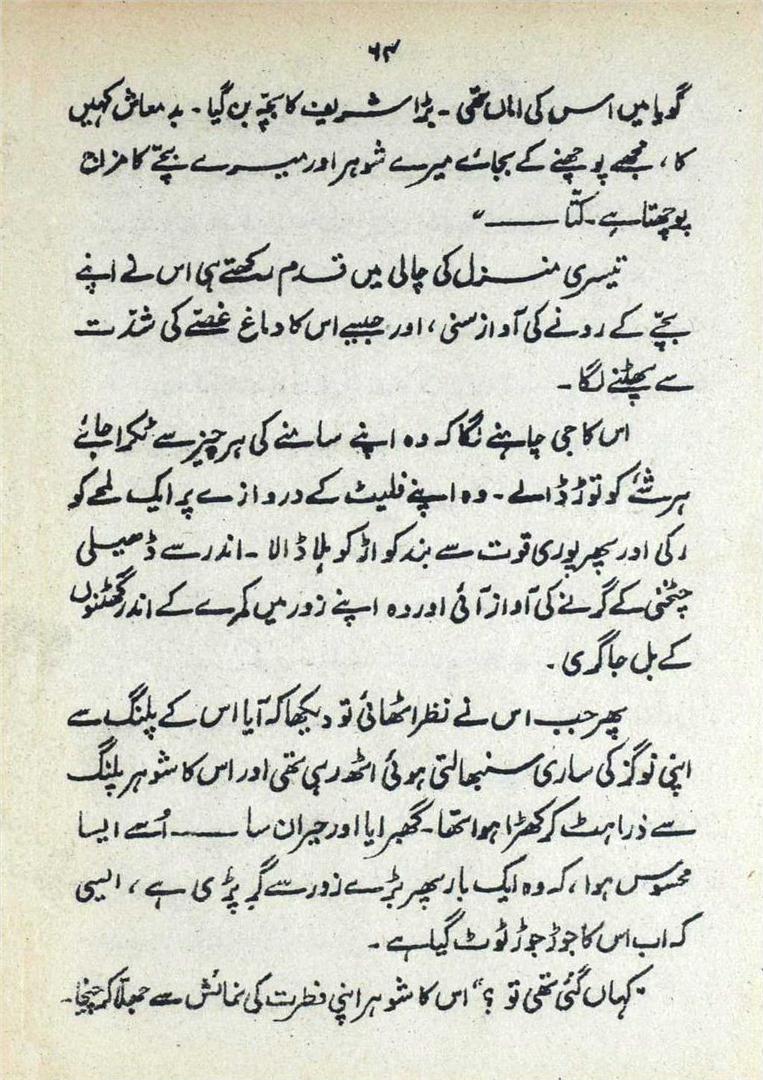 ۶۳
گویا میں اس کی اماں تھی ۔ بڑا شریف کا بچّہ بن گیا ۔ بدمعاش کہیں
کا، مجھے پوچھنے کے بجائے میرے شوہر اور میرے بچّے کا مزاج
پوچھتا ہے ۔ کتّا ــــــ ”
تیسری منزل کی چالی میں قدم رکھتے ہی اس نے اپنے
بچّے کے رونے کی آواز سنی، اور جیسے اس کا دماغ غصّے کی شدّت
سے پھٹنے لگا ۔
اس کا جی چاہنے لگا کہ وہ اپنے سامنے کی ہر چیز سے ٹکرا جائے
ہر شئے کو توڑ ڈالے ۔ وہ اپنے فلیٹ کے دروازے پر ایک لمحے کو
رکی اور پھر پوری قوت سے بند کواڑ کو ہلا ڈالا ۔ اندر سے ڈھیلی
چٹخنی کے گرنے کی آواز آئی اور وہ اپنے زور میں کمرے کے اندر گھٹنوں
کے بل جا گری ۔
پھر جب اس نے نظر اٹھائی تو دیکھا کہ آیا اس کے پلنگ سے
اپنی نو گز کی ساری سنبھالتی ہوئی اٹھ رہی تھی اور اس کا شوہر پلنگ
سے ذرا ہٹ کر کھڑا ہوا تھا ۔ گھبرایا اور حیران سا ــــــ اُسے ایسا
محسوس ہوا، کہ وہ ایک بار پھر بڑے زور سے گر پڑی ہے، ایسی
کہ اب اس کا جوڑ جوڑ ٹوٹ گیا ہے ۔
“کہاں گئی تھی تو ؟” اس کا شوہر اپنی فطرت کی نمائش سے جھلّا کر چیخا ۔